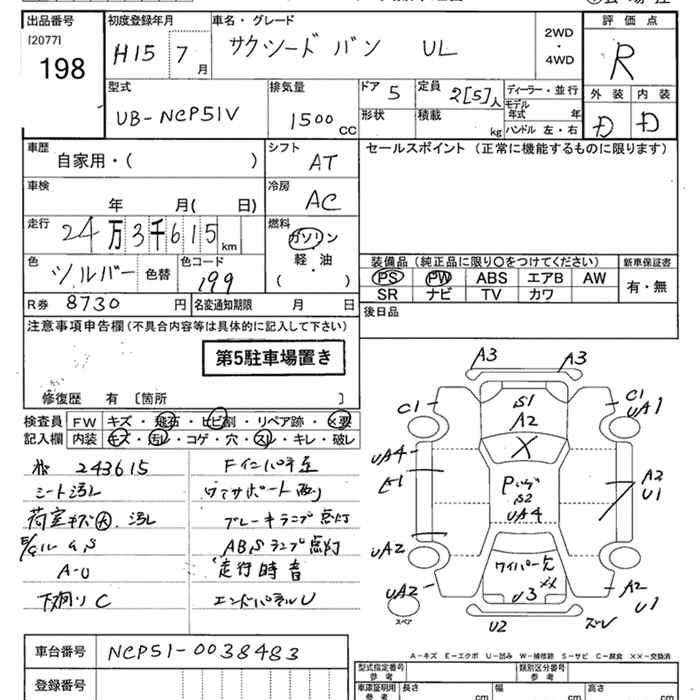 出品番号 初度登録年月 車名・グレード 評価点
[2077] 198 H15 7月 サクシード バン UL 2WD・4WD R
型式 排気量 ドア 5 定員 2[5]人 ディーラー・並行 外装 内装
UB-NCP51V 1500 CC 形状 積載 kg モデル年式 年 ハンドル 左・右 D D
車歴 シフト セールスポイント (正常に機能するものに限ります)
自家用・( ) AT
車検 冷房
年 月( 日) AC
走行 燃料
24万3千615km ガソリン
軽・油
( )
色 シルバー 色替 色コード 199
装備品(純正品に限り○をつけてください) 新車保証書
PS PW ABS エアB AW 有・無
SR ナビ TV カワ
R券 8730 円 名変通知期限 月 日 後日品
注意事項申告欄(不具合内容等は具体的に記入して下さい)
第5駐車場置き
修復歴 有 〔箇所 〕
検査員 FW キズ・飛石・ヒビ割・リペア跡・×要
記入欄 内装 キズ・汚レ・コゲ・穴・スレ・キレ・破レ
243615
シート汚レ
荷室キズ大、汚レ
A-U
下廻リ C
ブレーキランプ点灯
ABSランプ点灯
走行時音
エンドパネルU
A3 A3
C1 S1 A2 C1 UA1
UA4 X
A1 S2 UA4 A2 U1
UA2 ワイパー欠
UA2 U3 XX A2 U1
スペア U2
A-キズ E-エクボ U-凹み W-補修跡 S-サビ C-腐食 ××-交換済
車台番号 NCP51-0038483
登録番号
型式指定番号 参考 類別区分番号 参考
車庫証明用 参考 長さ cm 幅 cm 高さ cm